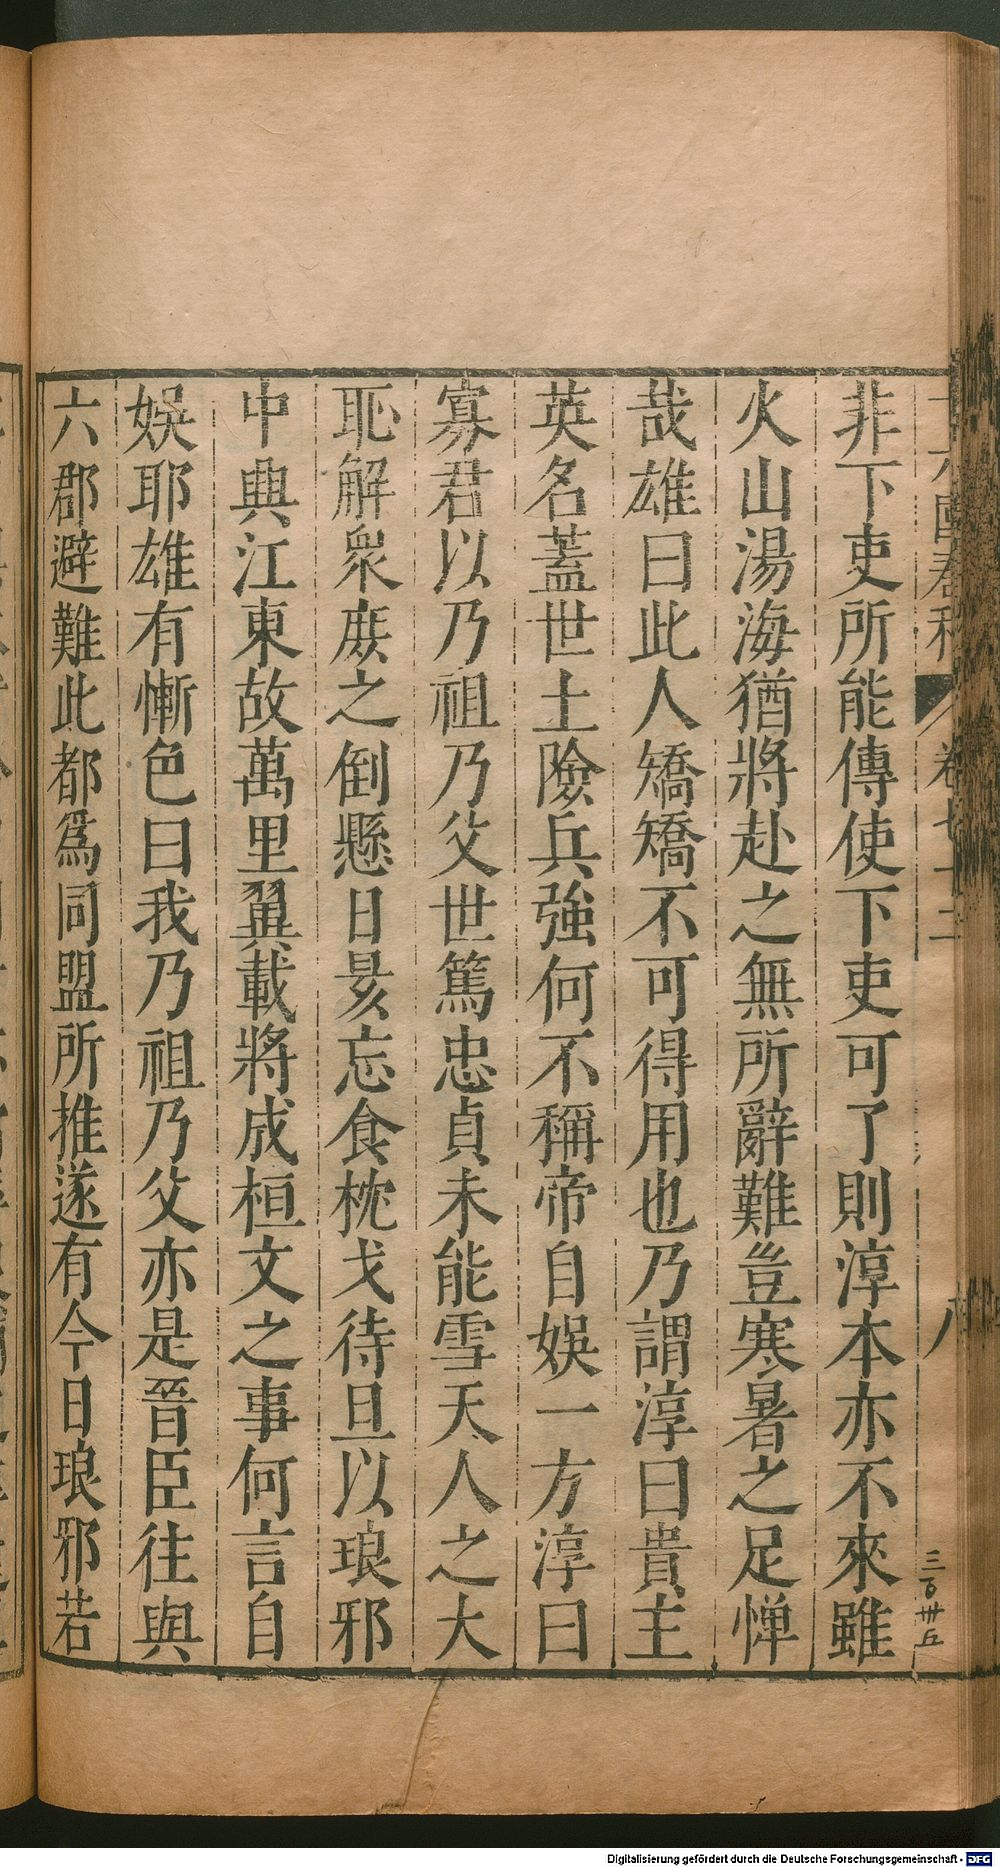 非下吏所能傳使下吏可了則淳本亦不來雖
火山湯海猶將赴之無所辭難豈寒暑之足憚
哉雄曰此人矯矯不可得用也乃謂淳曰貴主
英名蓋世土險兵強何不稱帝自娛一方淳曰
寡君以乃祖乃父世篤忠貞未能雪天人之大
恥解衆庶之倒懸日昃忘食枕戈待旦以琅邪
中興江東故萬里翼載將成桓文之事何言自
娛耶雄有慚色曰我乃祖乃父亦是晉臣往與
六郡避難此都爲同盟所推遂有今日琅邪若
Digitalisierung gefördert durch die Deutsche Forschungsgemeinschaft - DFG